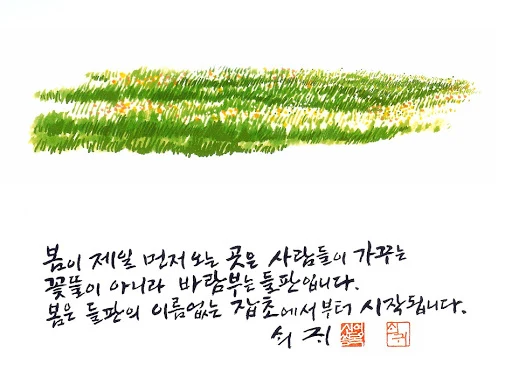 봄이 제일 먼저 오는 곳은 사람들이 가꾸는
꽃뜰이 아니라 바람부는 들판입니다.
봄은 들판의 이름없는 잡초에서부터 시작됩니다.